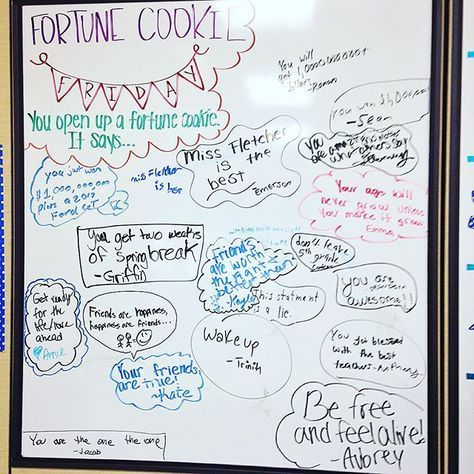 FORTUNE COOKIE
FRIDAY
You open up a fortune cookie.
It says...
You will
get 1,000,000,000+
-Ronan
you won $1,000
-Sean
Miss Fletcher
is the
best
-Emerson
miss Fletcher
is best
you just won
$1,000,000,000
plus a 2017
Ford
You are
what others say
Your age will
never grow unless
you make it grow
Emma
You get two weeks
of Spring break
-Griffin
Friends
are worth
than
-Kayla
don't leave
5th grade
you are
awesome!!
Get ready
for the
life/race
ahead
Annie
Friends are happiness,
happiness are friends...
This statment
is a lie.
Wake up
-Trinity
You got blessed
with the best
teacher-Anthony
Your friends
are true!
-Kate
Be free
and feel alive!
-Aubrey
You are the one the one
-Jacob